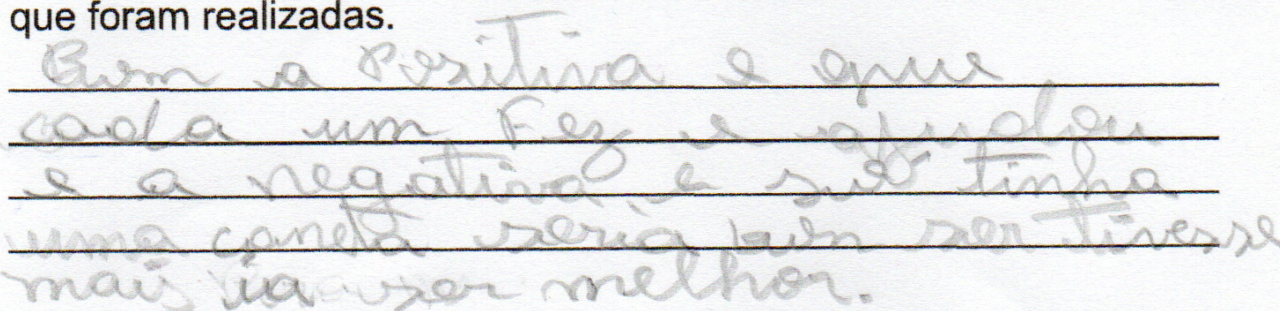 que foram realizadas.
Bom a Positiva e que
cada um Fez e ajudou
e a negativa e sué tinha
uma caneta seria bom ser tivesse
mais ia ser melhor.